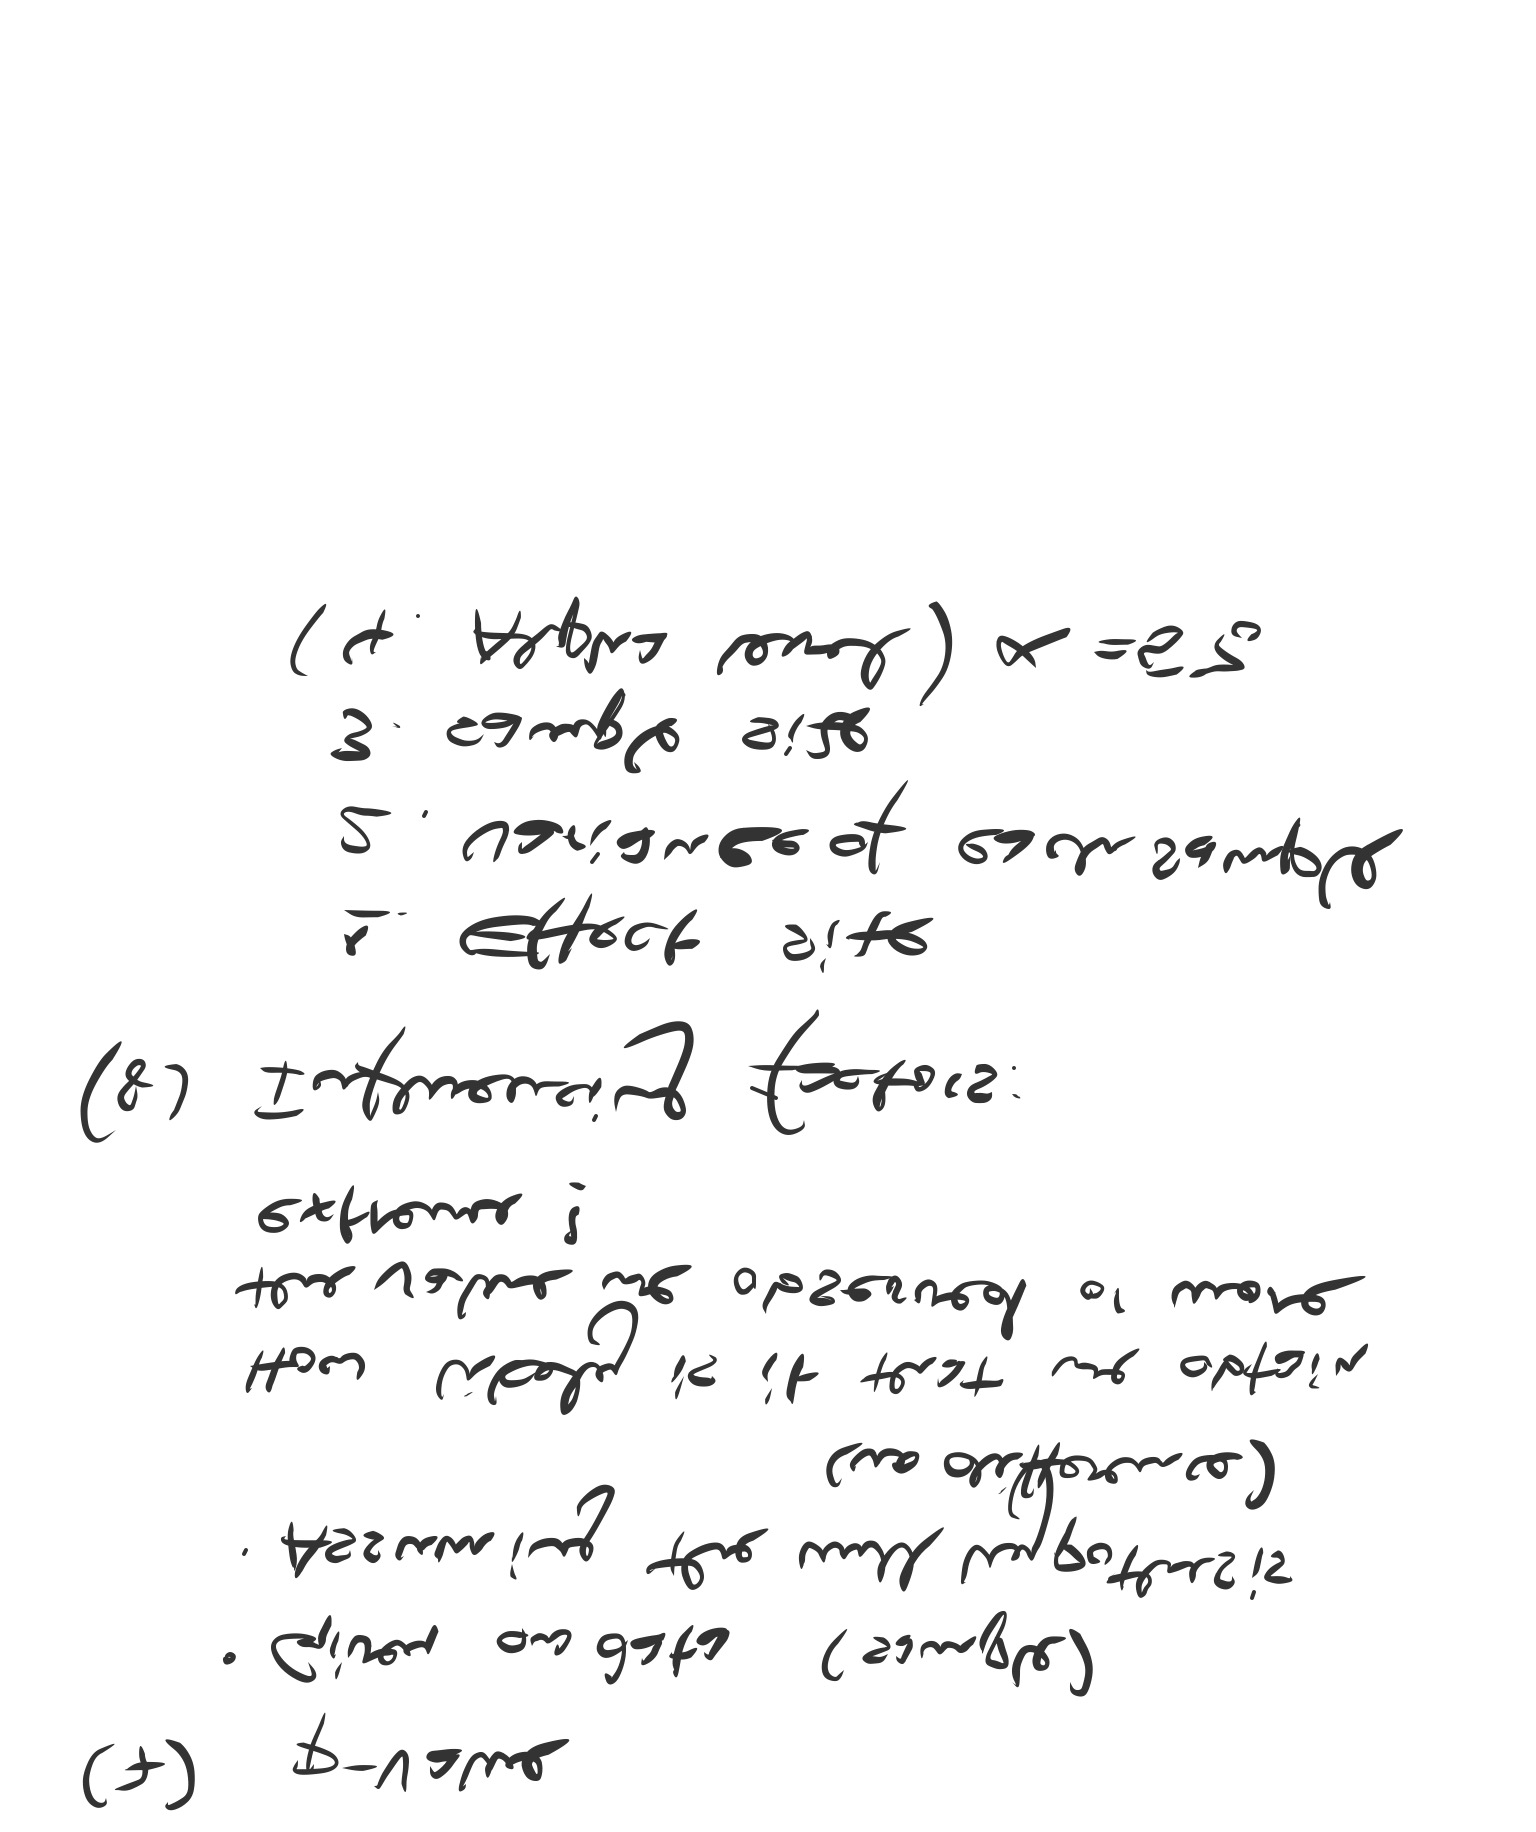 (7) p-Value
· Given our data (sample)
· Assuming the null hypothesis
(no difference)
How likely is it that we obtain
the value we observed or more
extreme?
(8) Influencing factors:
1. Effect size
2. Variance of each sample
3. sample size
(4. Alpha level) α = 5%